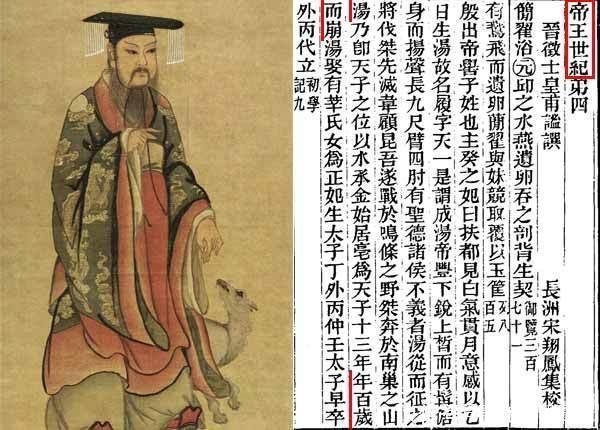 帝王世紀第四
晉徵士皇甫謐譔 長洲宋翔鳳集校
簡翟浴元邱之水燕遺卵吞之剖背生契御覽三百七十一
有鷰飛而遺卵簡翟與妹競取覆以玉筐又八百五
殷出帝嚳子姓也主癸之妃曰扶都見白氣貫月意感以乙
日生湯故名履字天一是謂成湯帝豐下銳上晳而有髯倨
身而揚聲長九尺臂四肘有聖德諸侯不義者湯從而征之
將伐桀先滅韋顧昆吾遂戰於鳴條之野桀奔於南巢之山
湯乃卽天子之位以水承金始居亳爲天子十三年年百歲
而崩湯娶有莘氏女爲正妃生太子丁外丙仲壬太子早卒
外丙代立初學記九